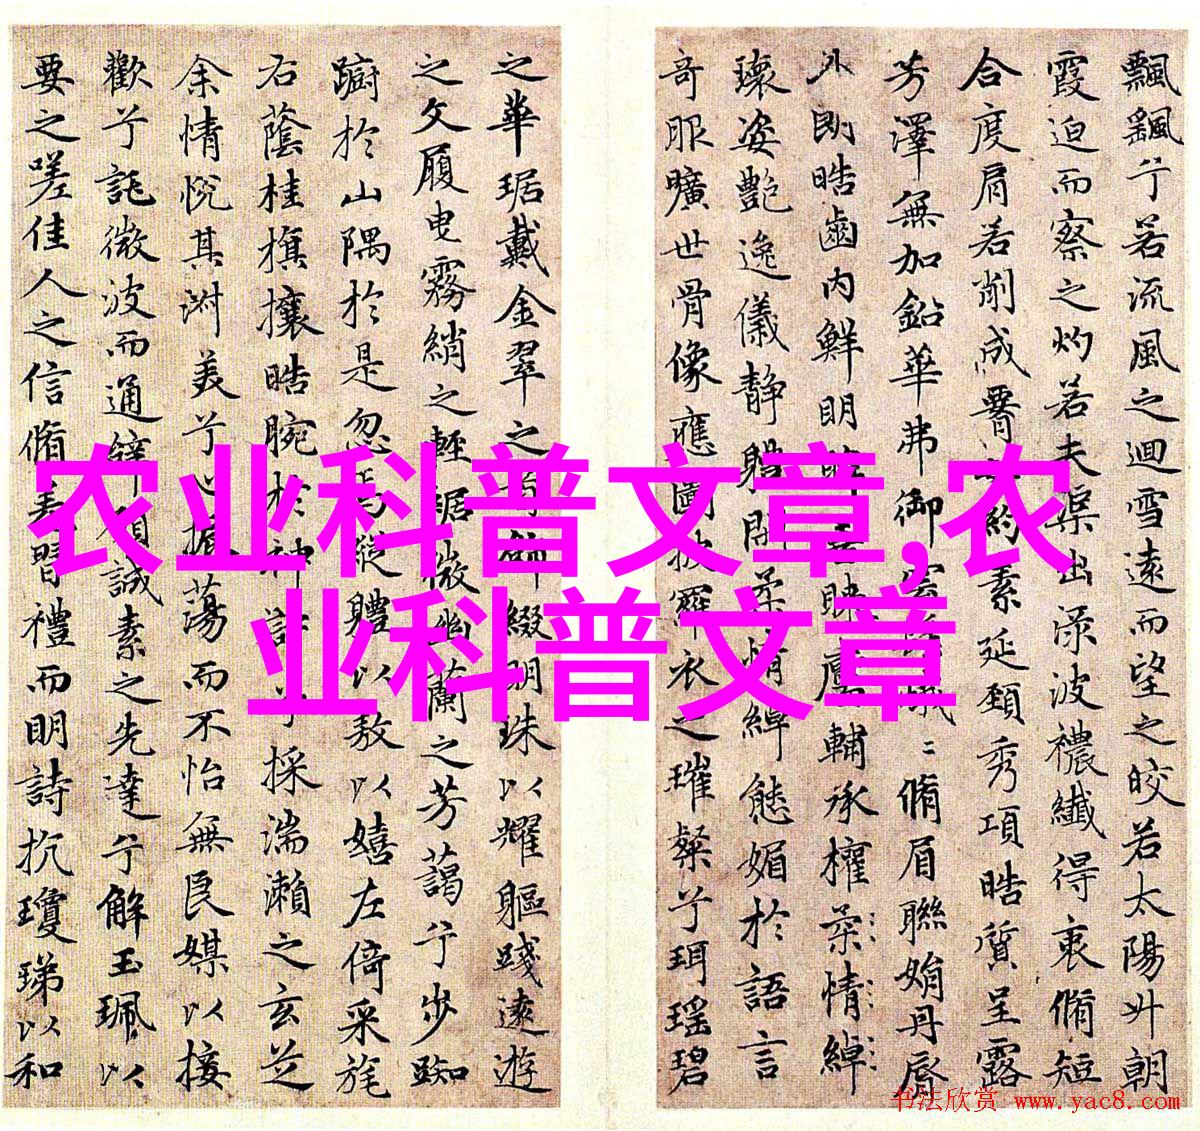 飄飖兮若流風之迴雪遠而望之皎若太陽升朝
霞迫而察之灼若夫渠出渌波襛纖得衷脩短
合度肩若削成約素延頸秀項皓質呈露
芳澤無加鉛華弗御脩眉聯娟丹脣
外朗皓齒內鮮明眸善睞靨輔承權柔情綽
瓌姿艷逸儀静體閑柔情綽態媚於語言
奇服曠世骨像應圖披羅衣之璀粲兮珥瑤碧
之華琚戴金翠之首飾綴明珠以耀軀踐遠遊
之文履曳霧綃之輕裾微幽蘭之芳藹兮步踟
蹰於山隅於是忽焉縱體以敖以嬉左倚采旄
右蔭桂旗攘皓腕於神滸兮採湍瀨之玄芝
余情悅其淑美兮心振蕩而不怡無良媒以接
歡兮託微波而通辭願誠素之先達兮解玉珮以
要之嗟佳人之信脩羌習禮而明詩抗瓊珶以和
农业科普文章,农
业科普文章
书法欣赏 www.yac8.com